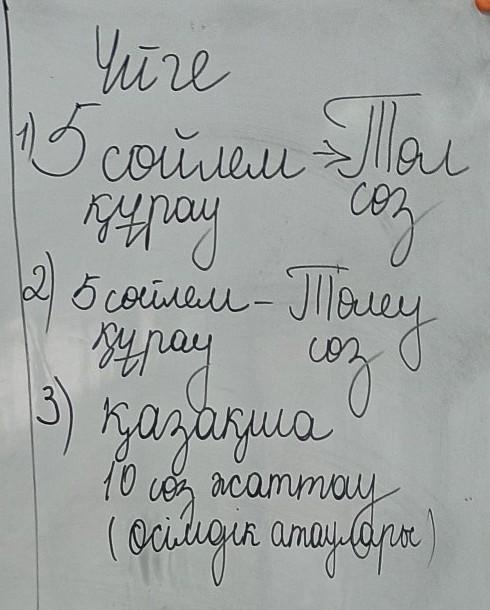 Үйге
1) 5 сөйлем → Төл
құрау сөз
2) 5 сөйлем – Төлеу
құрау сөз
3) қазақша
10 сөз жаттау
(өсімдік атаулары)